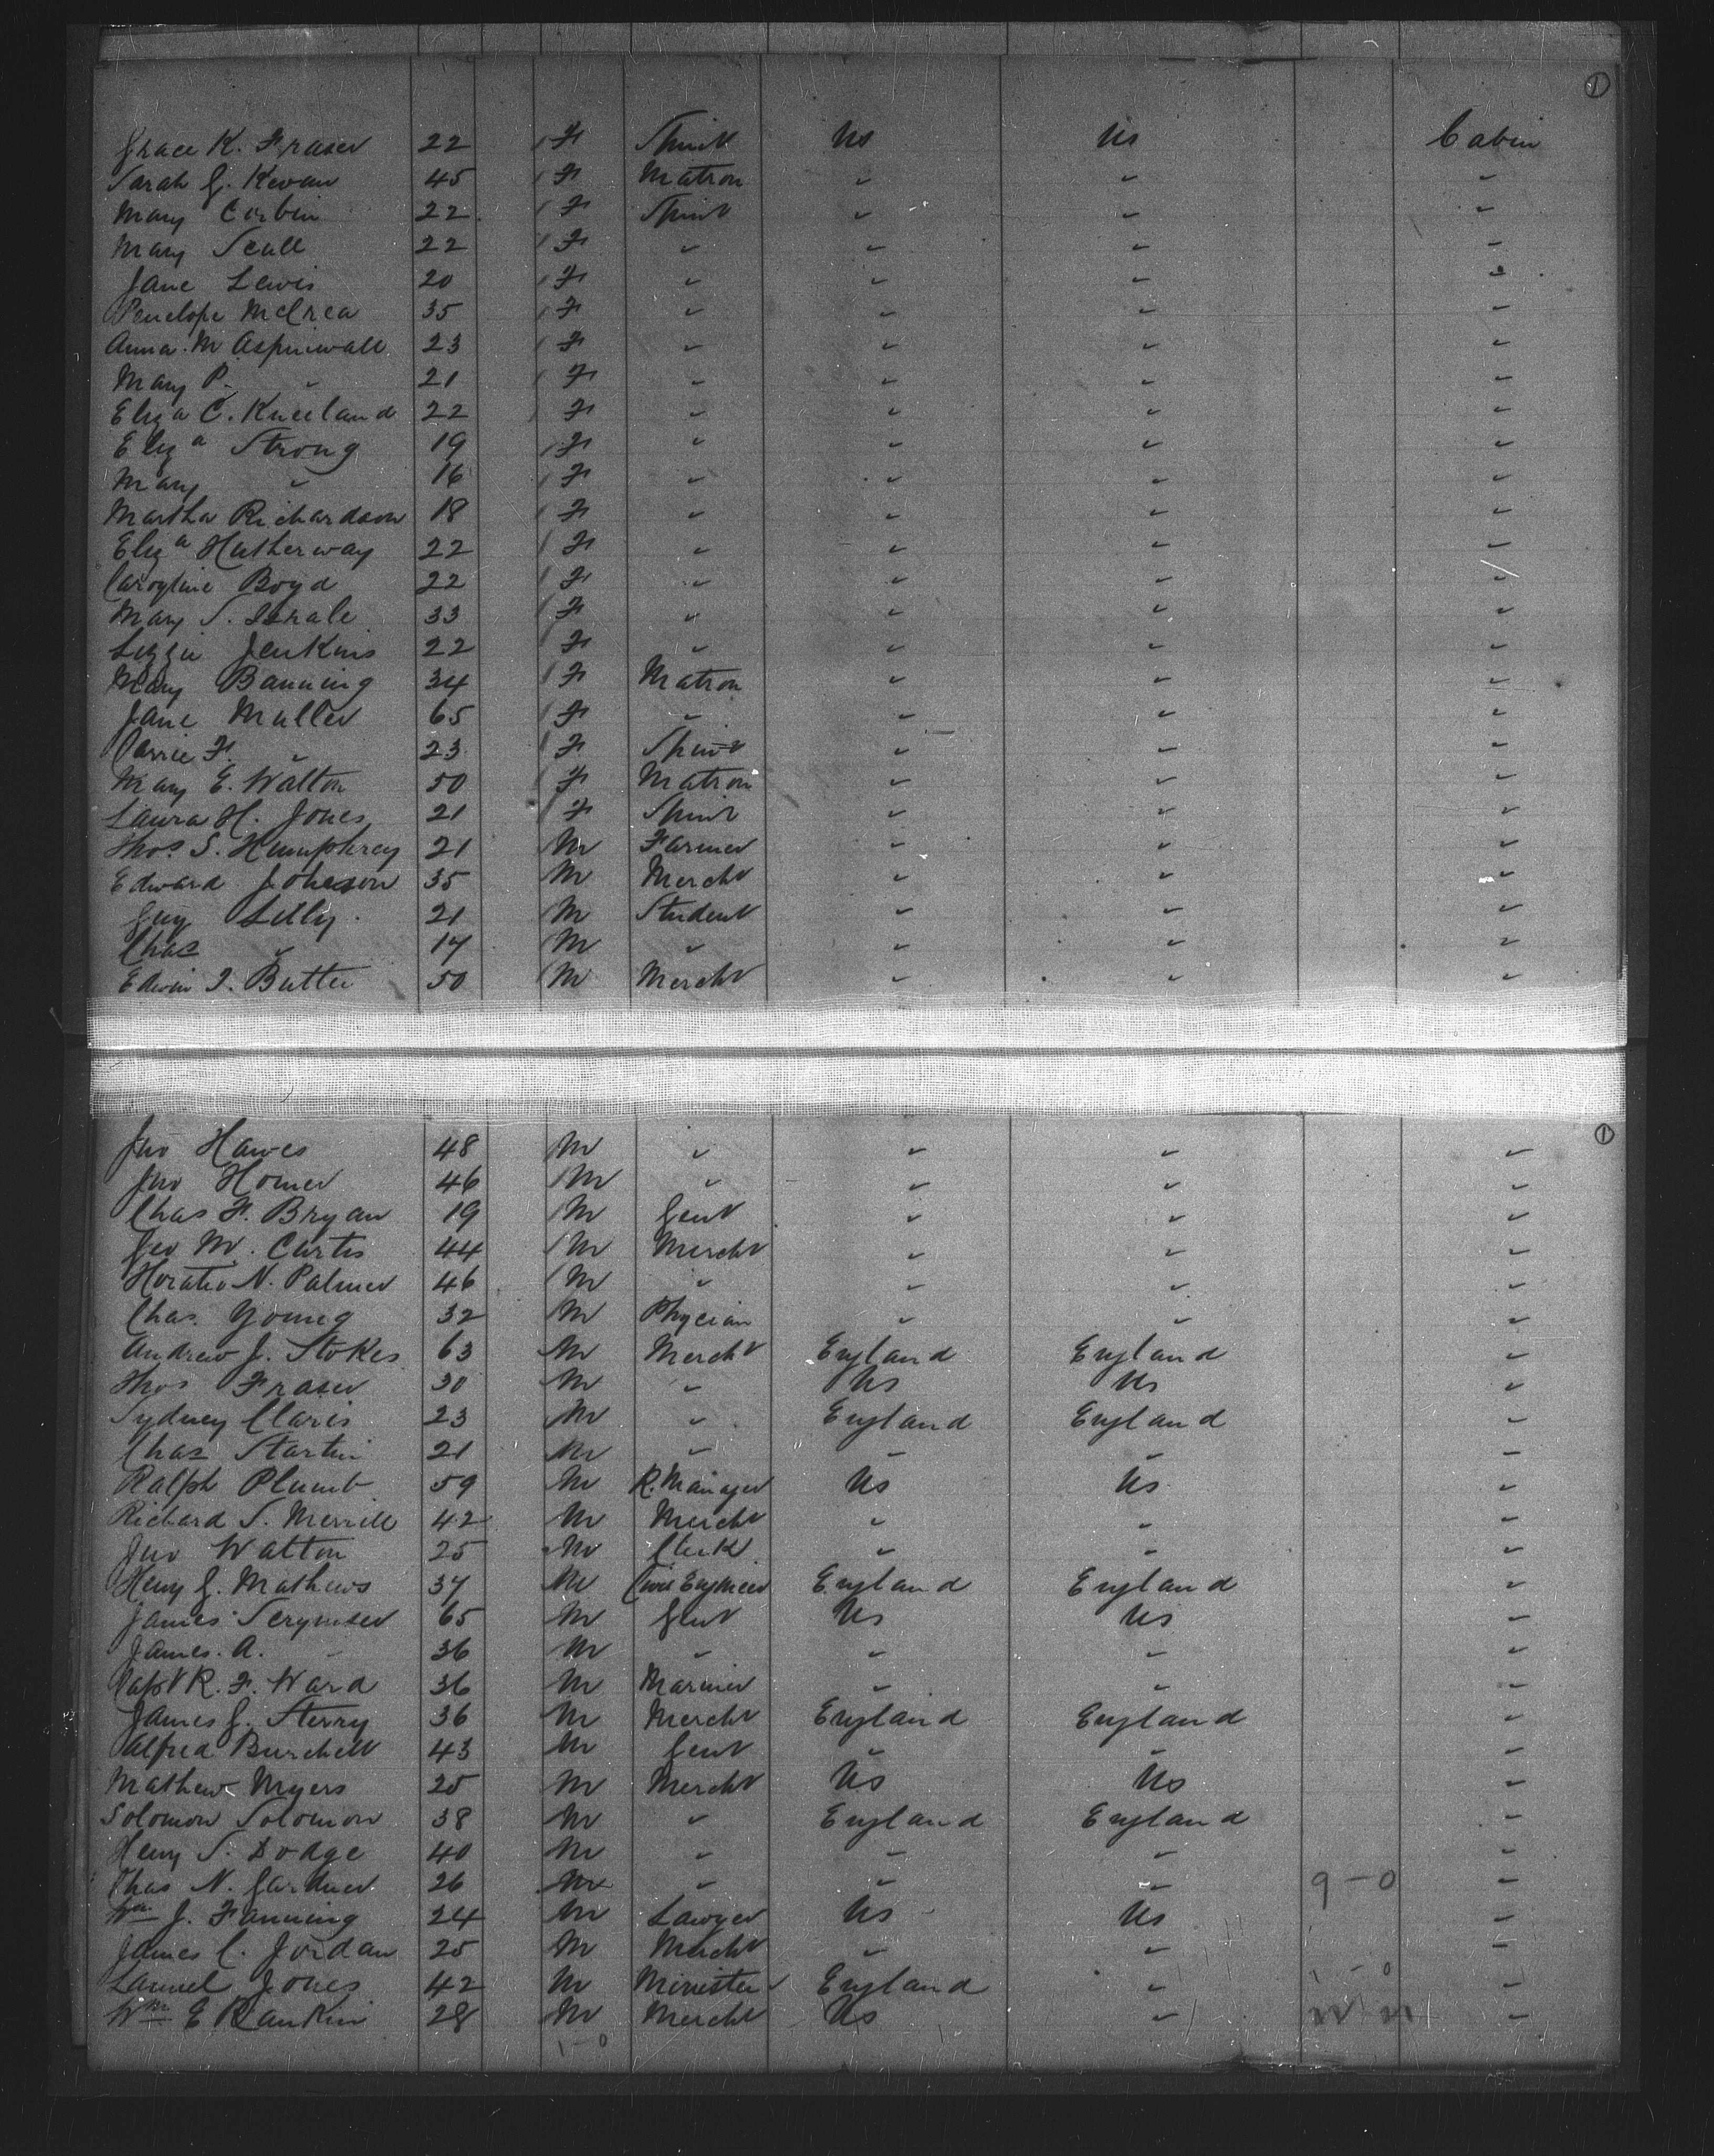 ①
Grace K. Fraser 22 1 F Spinst Us Us Cabin
Sarah J. Kevan 45 1 F Matron " " "
Mary Corbin 22 1 F Spinst " " "
Mary Scull 22 1 F " " " "
Jane Lewis 20 1 F " " " "
Penelope McCrea 35 1 F " " " "
Anna M Aspinwall 23 1 F " " " "
Mary P. " 21 1 F " " " "
Eliza C. Kneeland 22 1 F " " " "
Eliza Strong 19 1 F " " " "
Mary " 16 1 F " " " "
Martha Richardson 18 1 F " " " "
Eliza Hatherway 22 1 F " " " "
Caroline Boyd 22 1 F " " " "
Mary S. 33 1 F " " " "
Lizzie Jenkins 22 1 F " " " "
Mary Banning 34 1 F Matron " " "
Jane Muller 65 1 F " " " "
Carrie F. " 23 1 F Spinst " " "
Mary E. Walton 50 1 F Matron " " "
Laura H. Jones 21 1 F Spinst " " "
Thos S. Humphrey 21 1 M Farmer " " "
Edward Johnson 35 1 M Mercht " " "
Guy Lilly 21 1 M Student " " "
Chas " 17 1 M " " " "
Edwin J. Butler 50 1 M Mercht " " "
①
Jno Hawes 48 1 M " " " "
Jno Homer 46 1 M " " " "
Chas F. Bryan 19 1 M Gent " " "
Geo M. Curtis 44 1 M Mercht " " "
Horatio N. Palmer 46 1 M " " " "
Chas. Young 32 M Phycian " " "
Andrew J. Stokes 63 M Mercht England England "
Thos Fraser 30 M " Us Us "
Sydney Claris 23 M " England England "
Chas Startin 21 M " " " "
Ralph Plumb 59 M R. Manager Us Us "
Richard S. Merrill 42 M Mercht " " "
Jno Walton 25 M Clerk " " "
Henry J. Mathews 37 M Civil Engineer England England "
James Scrymser 65 M Gent Us Us "
James. A. " 36 M " " " "
Capt R. F. Ward 36 M Mariner " " "
James J. Sterry 36 M Mercht England England "
Alfred Burchell 43 M Gent " " "
Mathew Myers 25 M Mercht Us Us "
Solomon Solomon 38 M " England England "
Henry S. Dodge 40 M " " " "
Chas N. Gardner 26 M " " " 9-0 "
Wm J. Fanning 24 M Lawyer Us Us "
James C. Jordan 25 M Mercht " " "
Samuel Jones 42 M Minister England " "
Wm E Rankin 28 M Mercht Us " "
1-0